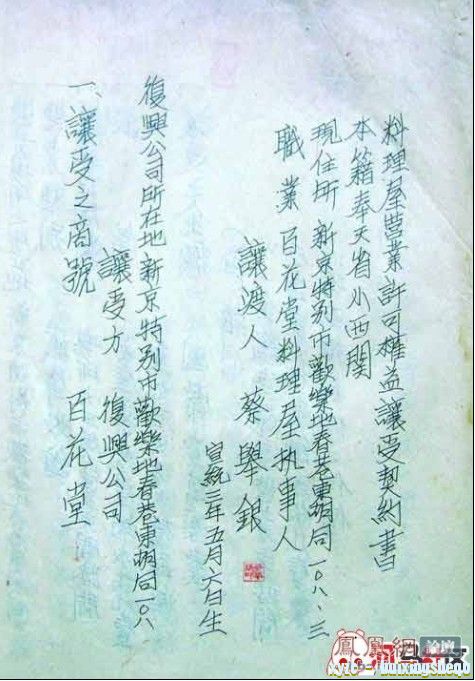 料理屋営業許可權益讓受契約書
本籍奉天省小西関
現住所 新京特别市歡樂地春巷東胡同一〇八、三
職業 百花堂料理屋执事人
讓渡人 蔡舉銀
宣統三年五月六日生
復興公司所在地新京特别市歡樂地春巷東胡同一〇八
讓受方 復興公司
一、讓受之商號 百花堂
鳳凰網
論壇